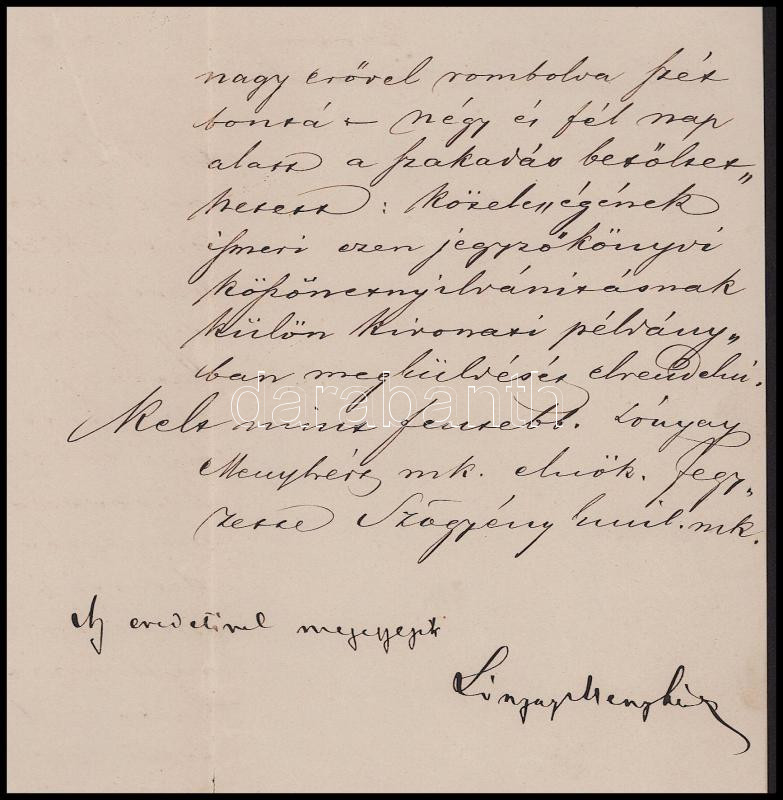 nagy erővel rombolva szét
bontá - négy és fél nap
alatt a szakadás betöltet„
hetett: kötele„égének
ismeri ezen jegyzőkönyvi
köszönetnyilvánitásnak
külön kivonati példány„
ban megküldését elrendelni.
Kelt mint fentebb. Lónyay
Menyhért mk. elnök. Jegy„
zette Szögyény Emil. mk.
Az eredetivel megegyezik
Lónyay Menyhért
darabanth